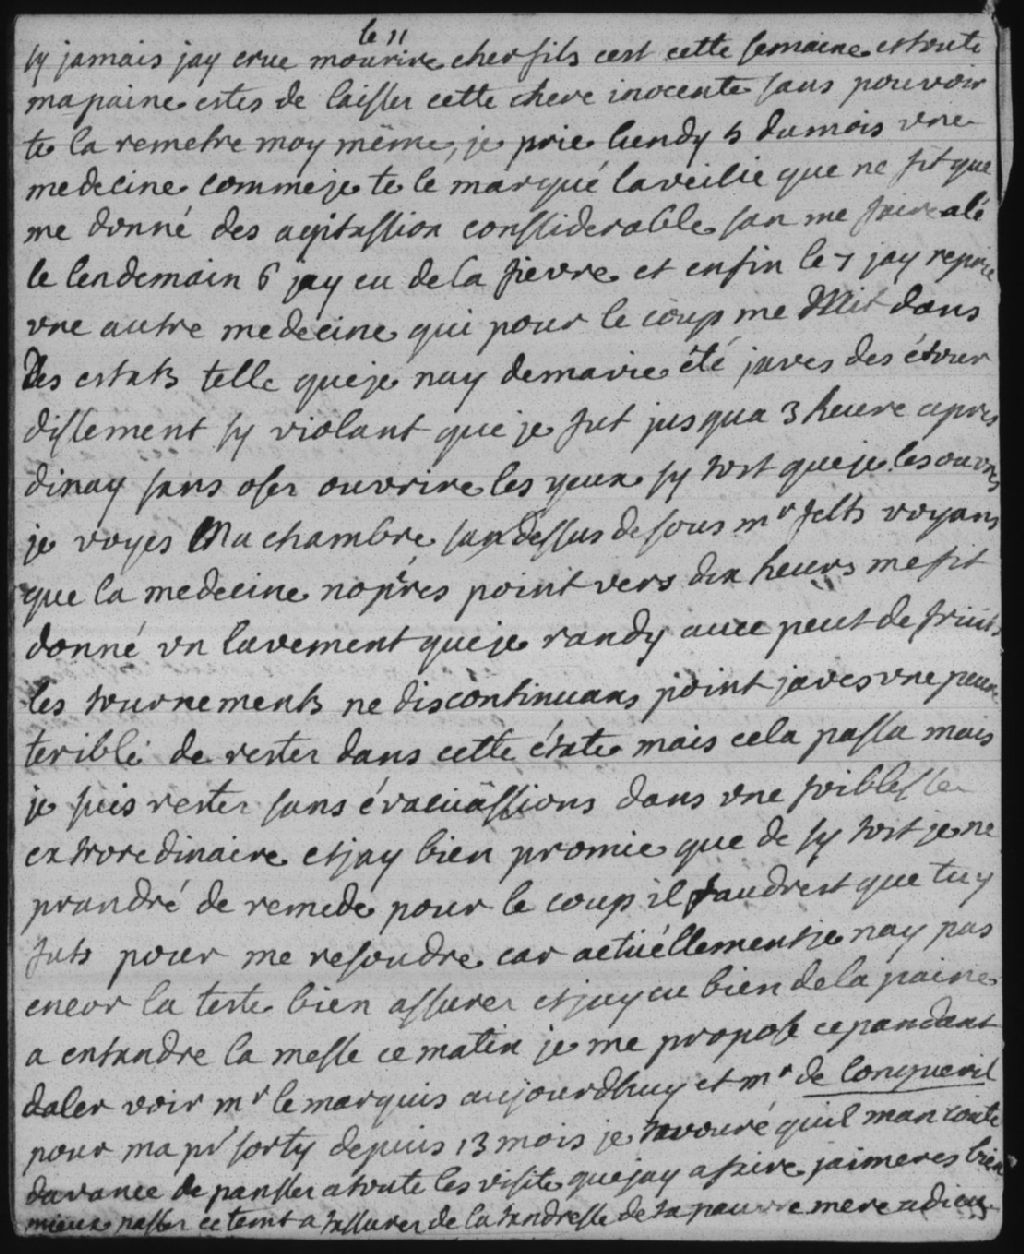 le 11
sy jamais jay crue mourire cher fils cest cette semaine et toute
ma paine estes de laisser cette chere inocente sans pouvoir
te la remetre moy même, je prie lundy 5 du mois vne
medecine comme je te le marqué la veille que ne fit que
me donné des agitassion conssiderable san me faire alé
le lendemain 6 jay eu de la fievre et enfin le 7 jay reprie
vne autre medecine qui pour le coup me Mit dans
des estats telle que je nay de ma vie été javes des étour
dissement sy violant que je fut jusqua 3 heure apres
dinay sans oser ouvrire les yeux sy tost que je les ouvres
je voyes Ma chambre san dessus desous mr felts voyans
que la medecine nopéres point vers dix heures me fit
donné vn lavement que je randy avec peut de fruits
les tournements ne discontinuans point javes vne peur
terible de rester dans cette état mais cela passa mais
je suis rester sans évacuassions dans vne foiblesse
extrore dinaire et jay bien promie que de sy tost je ne
prandré de remede pour le coup il faudrest que tu y
futs pour me resoudre car actuéllement je nay pas
encor la teste bien assurer et jay eu bien de la paine
a entandre la messe ce matin je me propose cepandant
daler voir mr le marquis aujourdhuy et mr de longueüil
pour ma pr sorty depuis 13 mois je tavouré quil man coute
davance de pansser a toute les visite que jay a faire jaimeres bien
mieux passer ce temt a tassurer de la tandresse de ta pauvre mere adieu